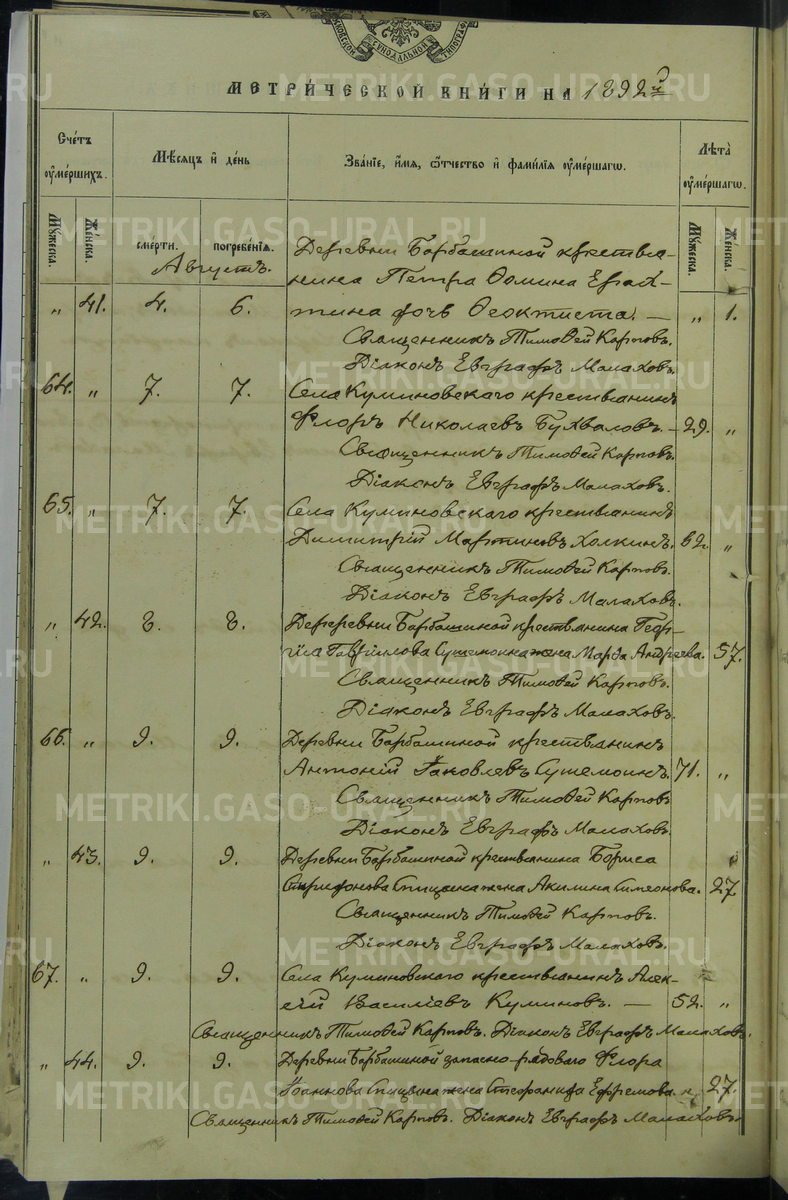 СѴНОДАЛЬНОЙ
МЕТРИ́ЧЕСКОЙ КНИ́ГИ НА 1892й
Счéтъ ᲂу҆мéршихъ.
Мѣ́сяцъ и҆ дéнь
Звáнїе, и҆́мя, ѻ҆́тчество и҆ фами́лїя ᲂу҆мéршагѡ.
Лѣ́та ᲂу҆мéршагѡ.
Мꙋ́жеска.
Жéнска.
смéрти.
погребéнїя.
Мꙋ́жеска.
Жéнска.
Августъ.
Деревни Барбашиной крестья-
нина Петра Ѳомина
" 41. 4. 6. дочь Ѳеоктиста. — " 1.
Священникъ Тимоѳей Карповъ.
Діаконъ Евграфъ Малаховъ.
64. " 7. 7. Села Куминовскаго крестьянинъ
Флоръ Николаевъ Бухваловъ. — 29. "
Священникъ Тимоѳей Карповъ.
Діаконъ Евграфъ Малаховъ.
65. " 7. 7. Села Куминовскаго крестьянинъ
Димитрій Мартиновъ Холкинъ. 62. "
Священникъ Тимоѳей Карповъ.
Діаконъ Евграфъ Малаховъ.
" 42. 8. 8. Деревни Барбашиной крестьянина Геор-
гія Гавріилова жена Марѳа Андреева. 57.
Священникъ Тимоѳей Карповъ.
Діаконъ Евграфъ Малаховъ.
66. " 9. 9. Деревни Барбашиной крестьянинъ
Антоній Іаковлевъ 71. "
Священникъ Тимоѳей Карповъ
Діаконъ Евграфъ Малаховъ.
" 43. 9. 9. Деревни Барбашиной крестьянина Бориса
Спицына жена Акилина Симеонова. 27.
Священникъ Тимоѳей Карповъ.
Діаконъ Евграфъ Малаховъ.
67. " 9. 9. Села Куминовскаго крестьянинъ Алек-
сій Василіевъ Куминовъ. — 52. "
Священникъ Тимоѳей Карповъ. Діаконъ Евграфъ Малаховъ.
" 44. 9. 9. Деревни Барбашиной запасно-рядоваго Флора
Іоаннова Спицына жена Стефанида Ефремова. 27.
Священникъ Тимоѳей Карповъ. Діаконъ Евграфъ Малаховъ.
METRIKI.GASO-URAL.RU